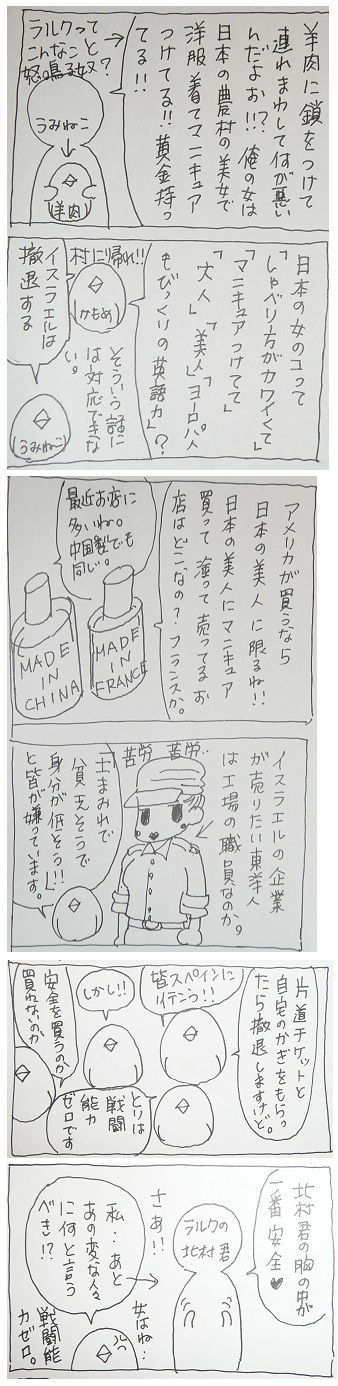 羊肉に鎖をつけて
連れまわして何が悪い
んだよお!!?俺の女は
日本の農村の美女で
洋服着てマニキュア
つけてる!!黄金持っ
てる!!
ラルクって
こんなこと
怒鳴る奴?
うみねこ
羊肉
日本の女のコって
「しゃべり方がカワイくて」
「マニキュアつけてて」
「大人」「美人」「ヨーロッパ人
もびっくりの英語力」?
村に帰れ!!
かもめ
そういう話に
は対応できな
い。
イスラエルは
撤退する
うみねこ
アメリカが買うなら
日本の美人に限るね!!
日本の美人にマニキュア
買って塗って売ってるお
店はどこなの?フランスか。
最近お店に
多いね。
中国製でも
同じ。
MADE
IN
CHINA
MADE
IN
FRANCE
イスラエルの企業
が売りたい東洋人
は工場の職員なのか。
苦労 苦労..
土まみれで
貧乏そうで
身分が低そう!!
と皆が嫌っています。
片道チケットと
自宅のかぎをもらっ
たら撤退しますけど。
皆スペインに
行こう!!
しかし!!
安全を買うのか
買わないのか
とりは
戦闘
能力
ゼロです
北村君の胸の中が
一番安全♥
ラルクの
北村君
さあ!!
女はね…
私…あと
あの変な人々
に何と言う
べき!?
戦闘能
力ゼロ。